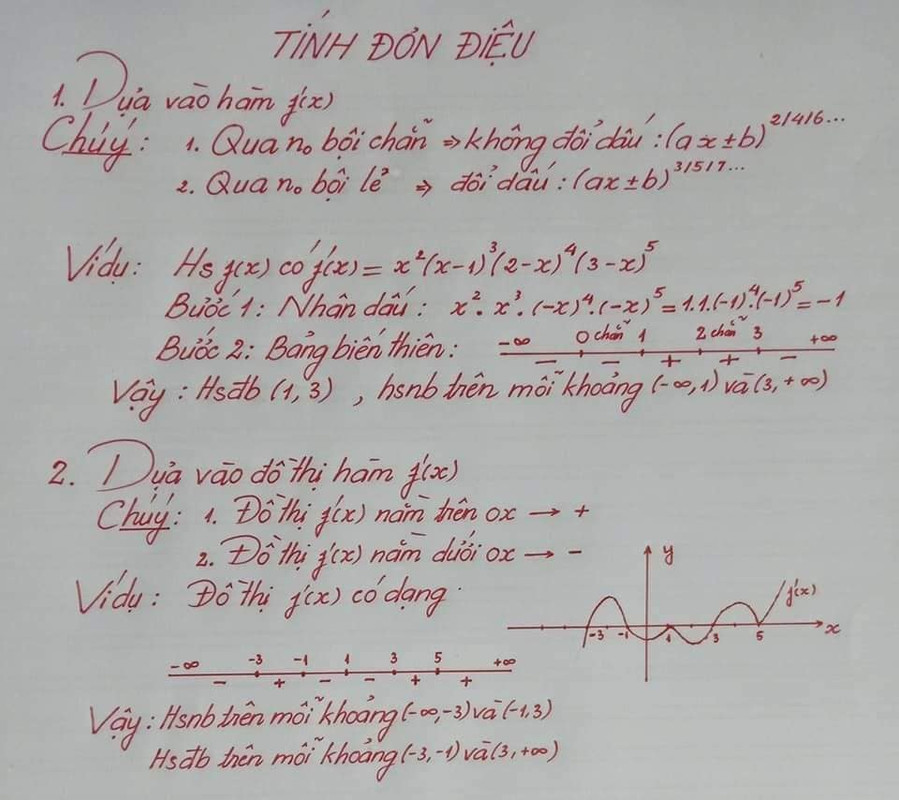 TÍNH ĐƠN ĐIỆU
1. Dựa vào hàm f'(x)
Chú ý: 1. Qua n₀ bội chẵn => không đổi dấu: (ax ± b)^2/4/6...
2. Qua n₀ bội lẻ => đổi dấu: (ax ± b)^3/5/7...
Ví dụ: Hs f(x) có f'(x) = x²(x-1)³(2-x)⁴(3-x)⁵
Bước 1: Nhân dấu: x². x³. (-x)⁴. (-x)⁵ = 1.1.(-1)⁴.(-1)⁵ = -1
Bước 2: Bảng biến thiên: -∞ 0 chẵn 1 2 chẵn 3 +∞
- - + + -
Vậy: Hsđb (1, 3) , hsnb trên mỗi khoảng (-∞, 1) và (3, +∞)
2. Dựa vào đồ thị hàm f'(x)
Chú ý: 1. Đồ thị f'(x) nằm trên ox → +
2. Đồ thị f'(x) nằm dưới ox → -
Ví dụ: Đồ thị f'(x) có dạng
y
f'(x)
-3 -1 1 3 5 x
-∞ -3 -1 1 3 5 +∞
- + - - + +
Vậy: Hsnb trên mỗi khoảng (-∞, -3) và (-1, 3)
Hsđb trên mỗi khoảng (-3, -1) và (3, +∞)